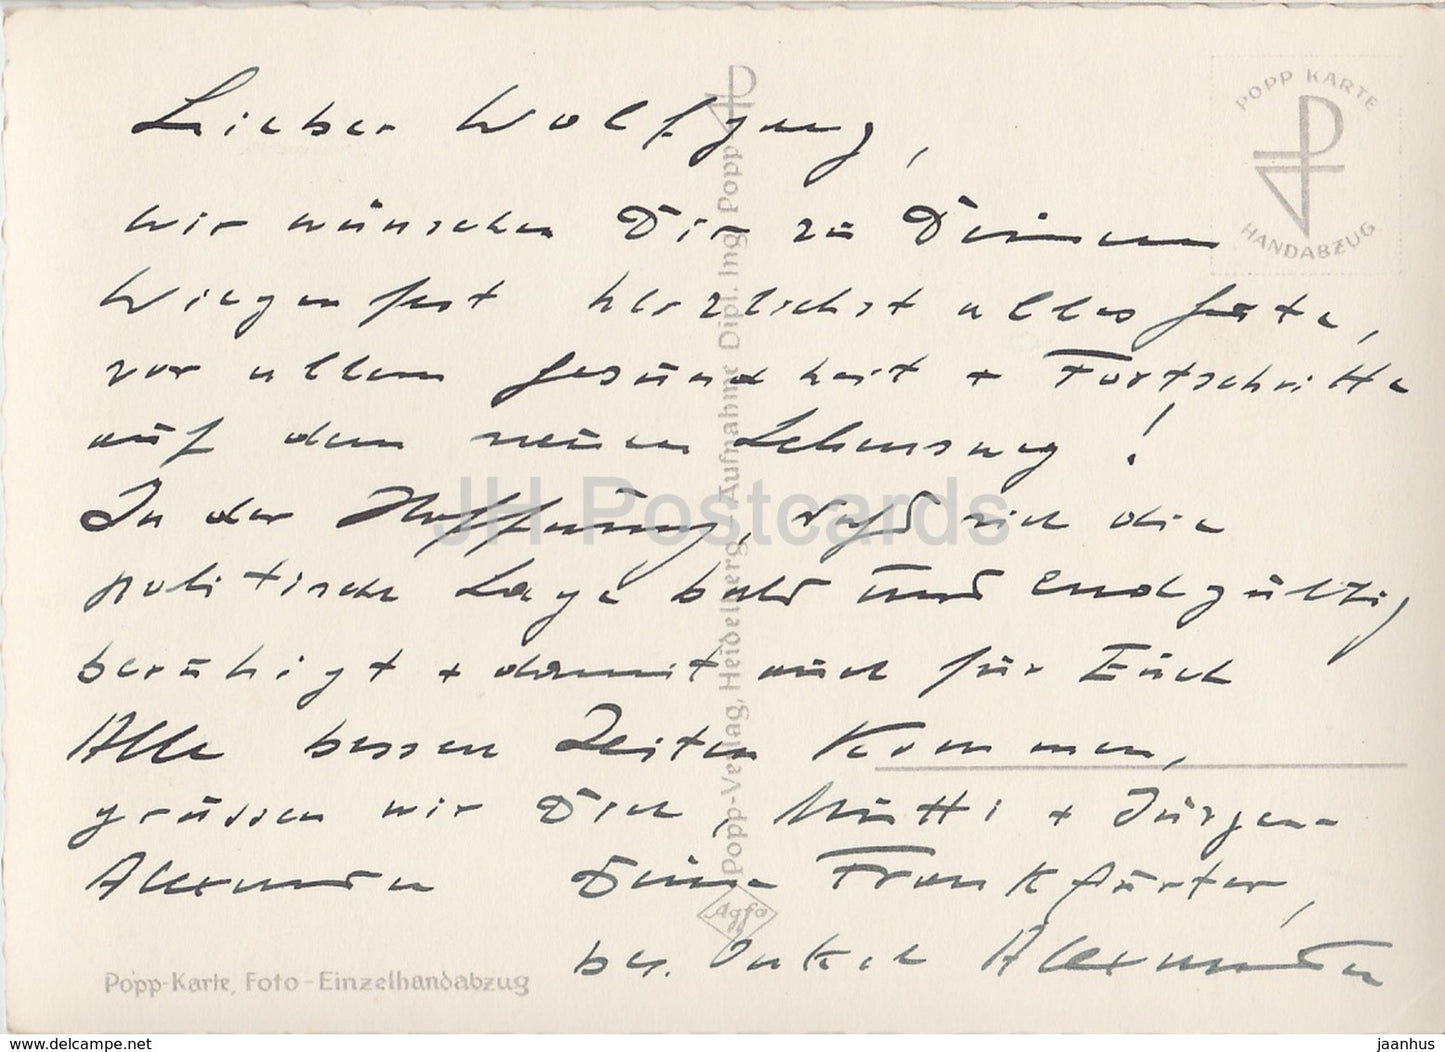 Lieber Wolfgang,
wir wünschen Dir zu Deinem
Wiegenfest herzlichst alles Gute,
vor allem Gesundheit + Fortschritte
auf dem neuen Lebensweg!
In der Hoffnung, daß sich die
politische Lage bald und endgültig
beruhigt + damit auch für Euch
Alle bessere Zeiten kommen,
grüssen wir Dich, Mutti + Jürgen-
Alexander Deine Frankfurter,
bes. Onkel Alexander
POPP KARTE
HANDABZUG
Popp-Verlag, Heidelberg, Aufnahme Dipl. Ing. Popp
Agfa
Popp-Karte, Foto-Einzelhandabzug
JH Postcards
www.delcampe.net
jaanhus